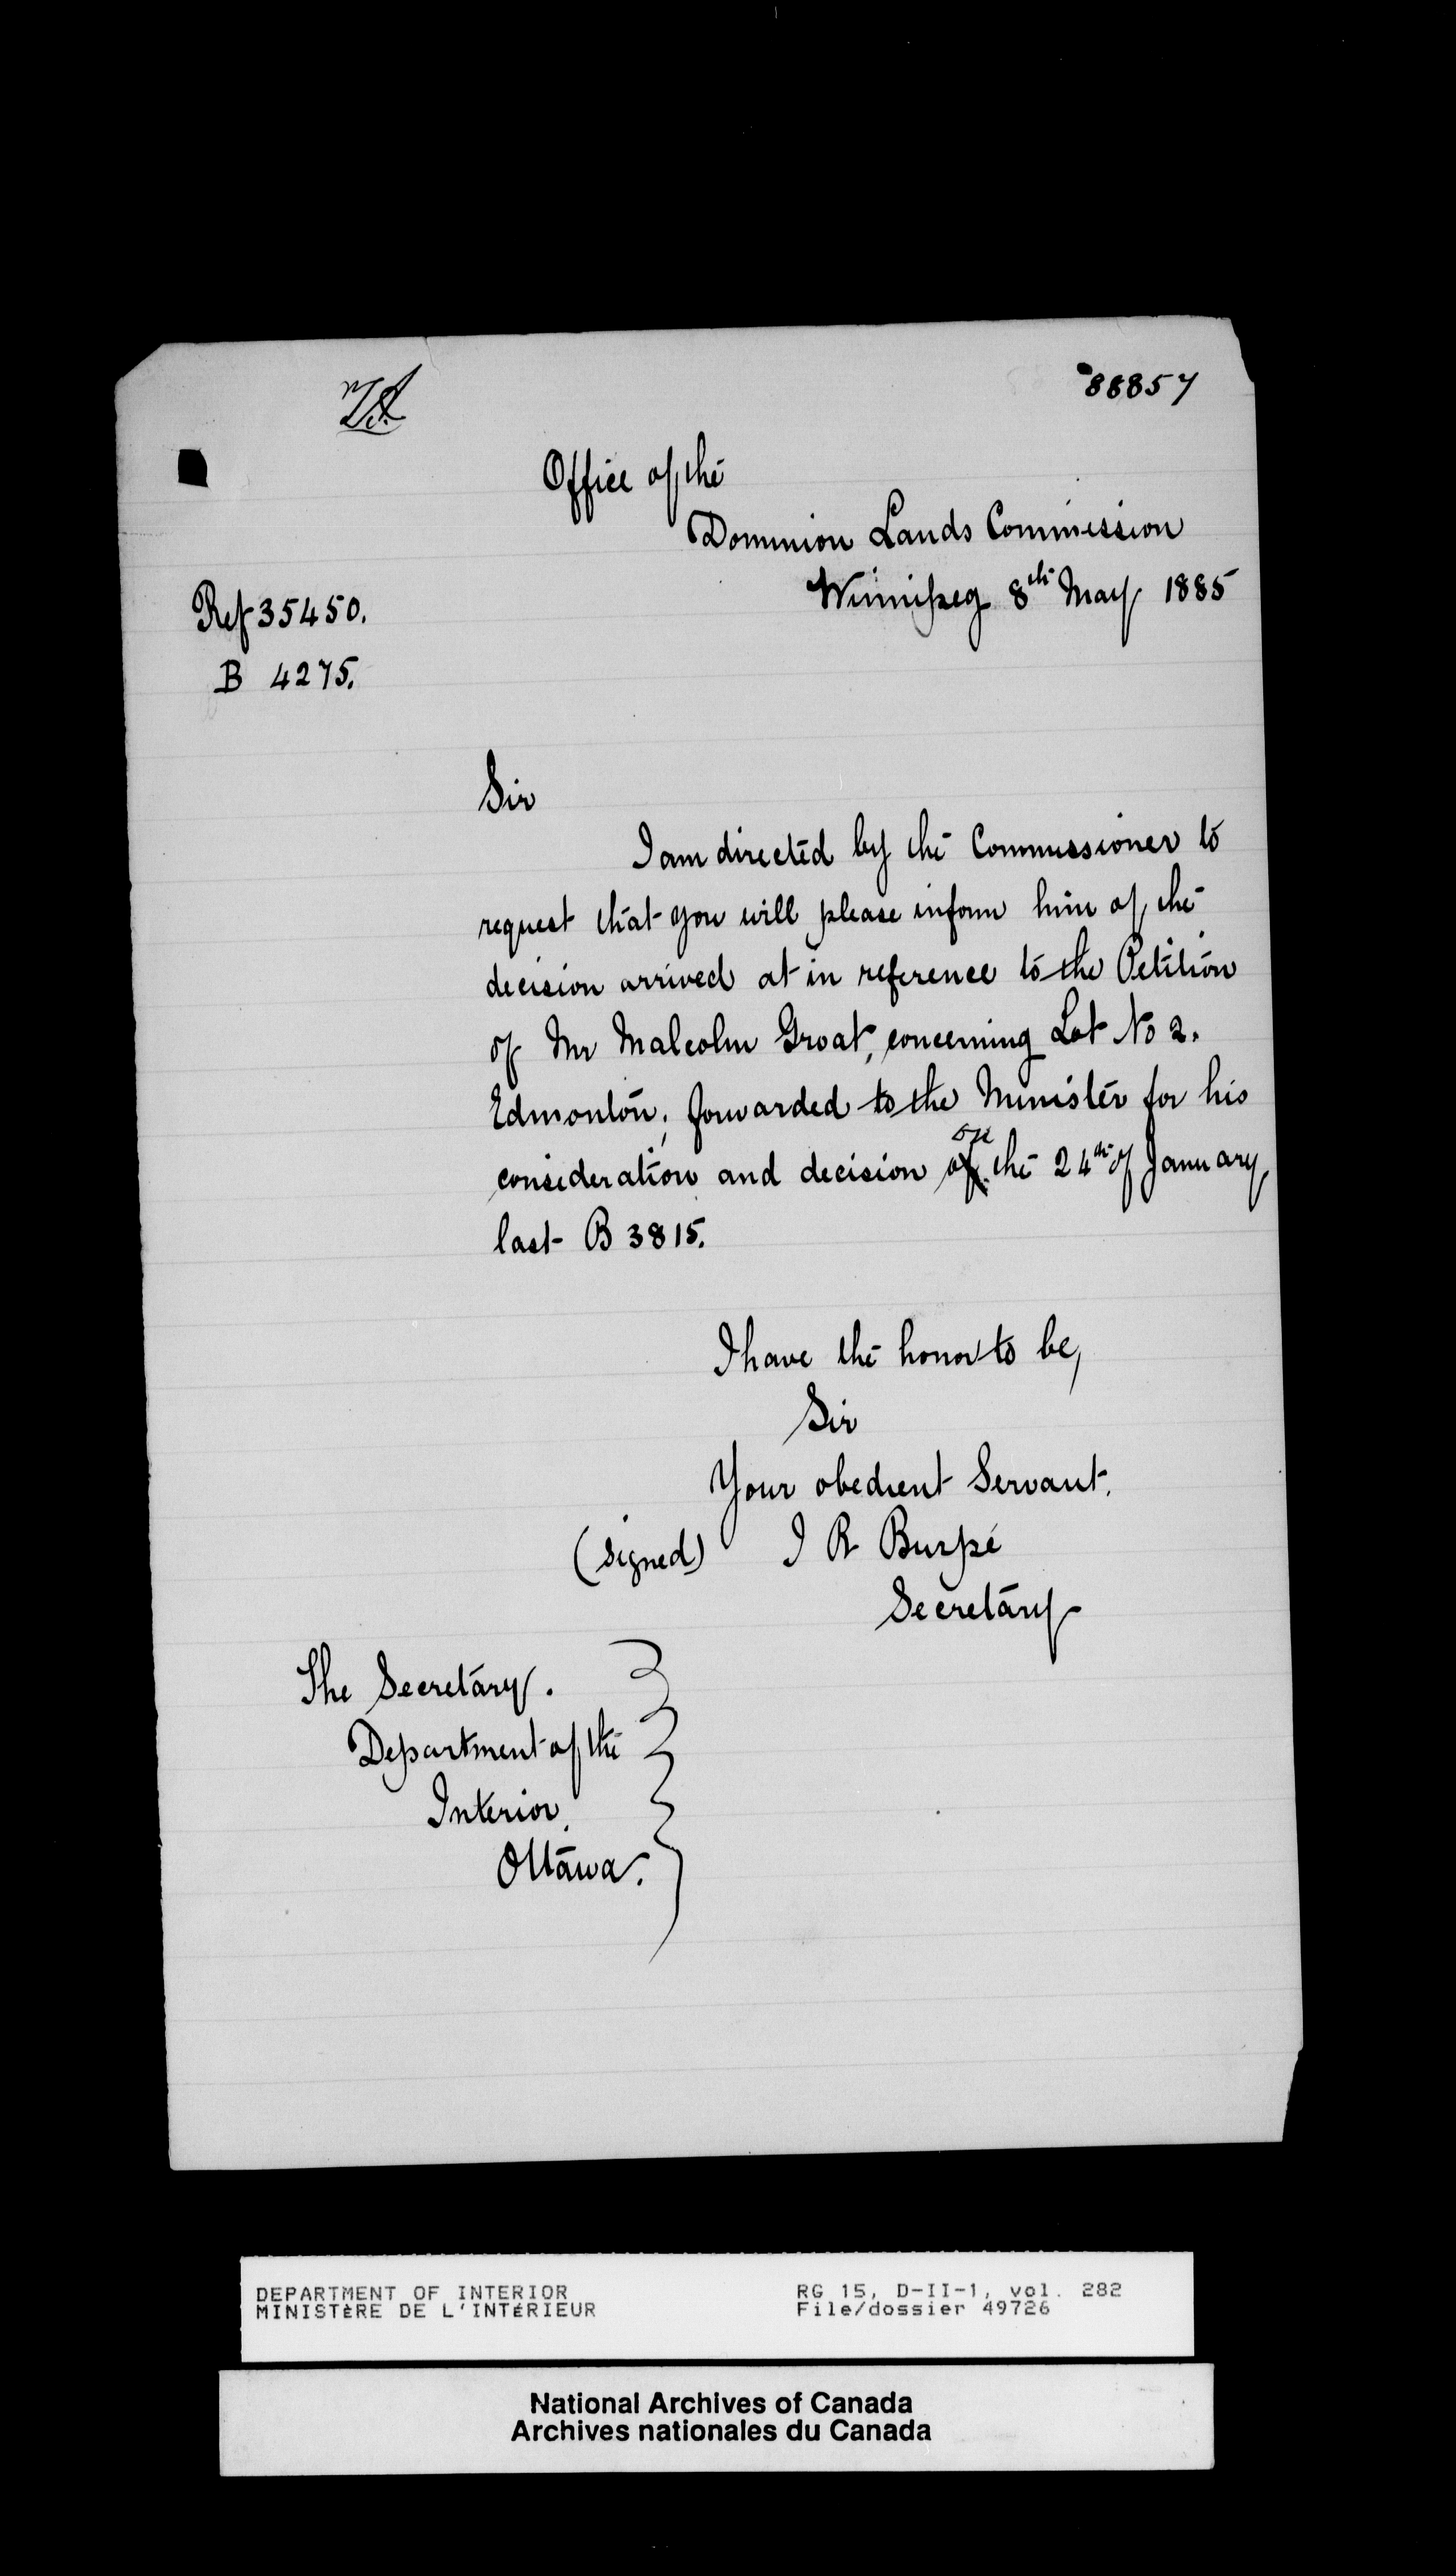 88857
Office of the
Dominion Lands Commission
Winnipeg 8th May 1885
Ref 35450.
B 4275.
Sir
I am directed by the Commissioner to
request that you will please inform him of the
decision arrived at in reference to the Petition
of Mr Malcolm Groat, concerning Lot No 2.
Edmonton, forwarded to the Minister for his
on
consideration and decision of the 24th of January,
last B 3815.
I have the honor to be,
Sir
Your obedient Servant.
(signed) I R Burpé
Secretary
The Secretary.
Department of the
Interior.
Ottawa.
DEPARTMENT OF INTERIOR
MINISTÈRE DE L'INTÉRIEUR
RG 15, D-II-1, vol. 282
File/dossier 49726
National Archives of Canada
Archives nationales du Canada